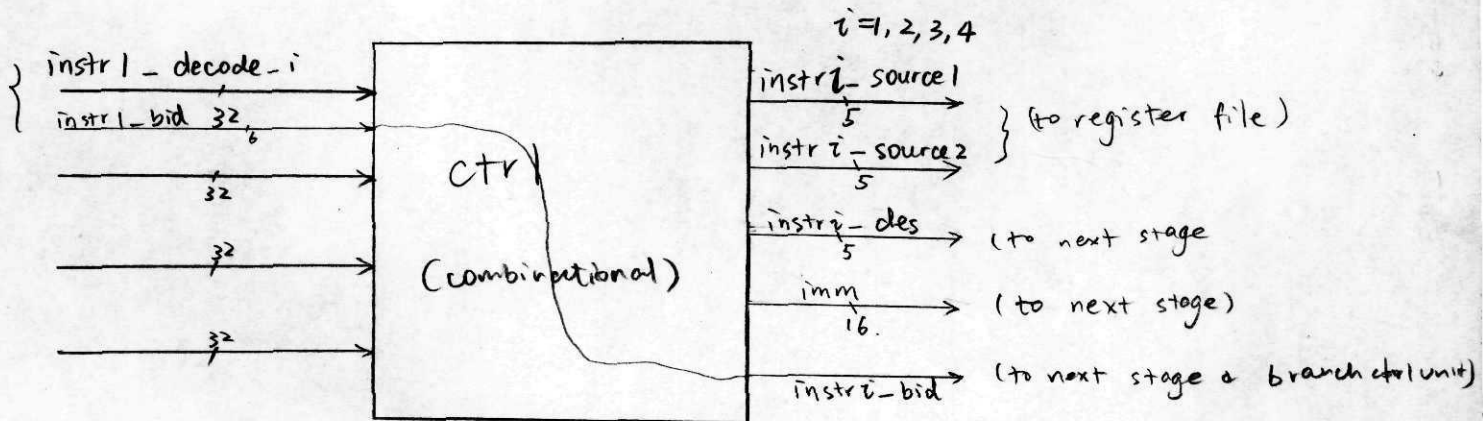 i=1, 2, 3, 4
instr1_decode_i
32
instr1_bid
6
32
32
32
ctrl
(combinational)
instri_source1
5
instri_source2
5
} (to register file)
instri_des
5
(to next stage
imm
16.
(to next stage)
instri_bid
(to next stage & branch ctrl unit)